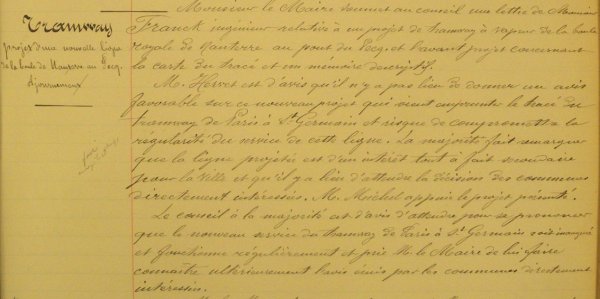 Tramway
projet d'une nouvelle ligne
de la boule de Nanterre au Pecq.
Ajournement
Monsieur le Maire soumet au conseil une lettre de Monsieur
Franck ingénieur relative à un projet de tramway à vapeur de la boule
royale de Nanterre au pont du Pecq, et l'avant projet concernant
la carte du tracé et un mémoire descriptif.
M. Hervet est d'avis qu'il n'y a pas lieu de donner un avis
favorable sur ce nouveau projet qui vient emprunter le tracé du
tramway de Paris à St Germain et risque de compromettre la
régularité du service de cette ligne. La majorité fait remarquer
que la ligne projetée est d'un intérêt tout à fait secondaire
pour la Ville et qu'il y a lieu d'attendre la décision des communes
directement intéressées. M. Michel appuie le projet présenté.
Le conseil à la majorité est d'avis d'attendre pour se prononcer
que le nouveau service du tramway de Paris à St Germain soit inauguré
et fonctionne régulièrement et prie M. le Maire de lui faire
connaître ultérieurement l'avis émis par les communes directement
intéressées.